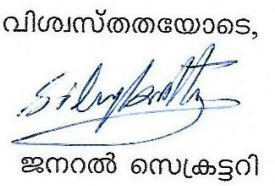 വിശ്വസ്തതയോടെ,
ജനറൽ സെക്രട്ടറി